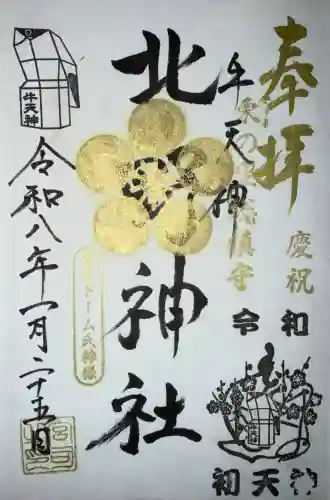 奉拝
慶祝
令和
牛天神
北野神社
東京ドーム氏神様
牛天神
令和八年一月二十五日
初天神